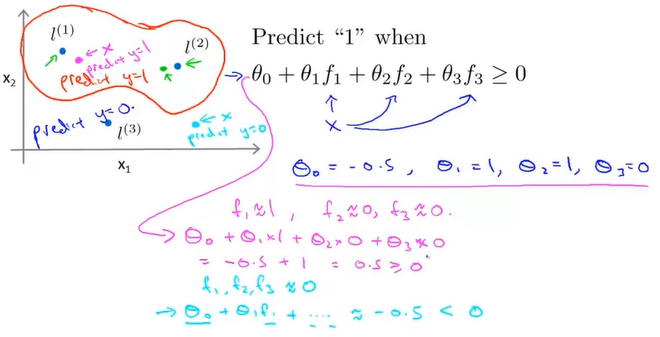 l^{(1)}
l^{(2)}
← x
predict y=1
predict y=1
x_2
predict y=0.
l^{(3)}
← x
predict y=0
x_1
Predict “1” when
→ θ_0 + θ_1 f_1 + θ_2 f_2 + θ_3 f_3 ≥ 0
x
θ_0 = -0.5 , θ_1 = 1, θ_2 = 1, θ_3 = 0
f_1 ≈ 1 , f_2 ≈ 0, f_3 ≈ 0.
θ_0 + θ_1 × 1 + θ_2 × 0 + θ_3 × 0
= -0.5 + 1 = 0.5 ≥ 0
f_1, f_2, f_3 ≈ 0
→ θ_0 + θ_1 f_1 + .... ≈ -0.5 < 0